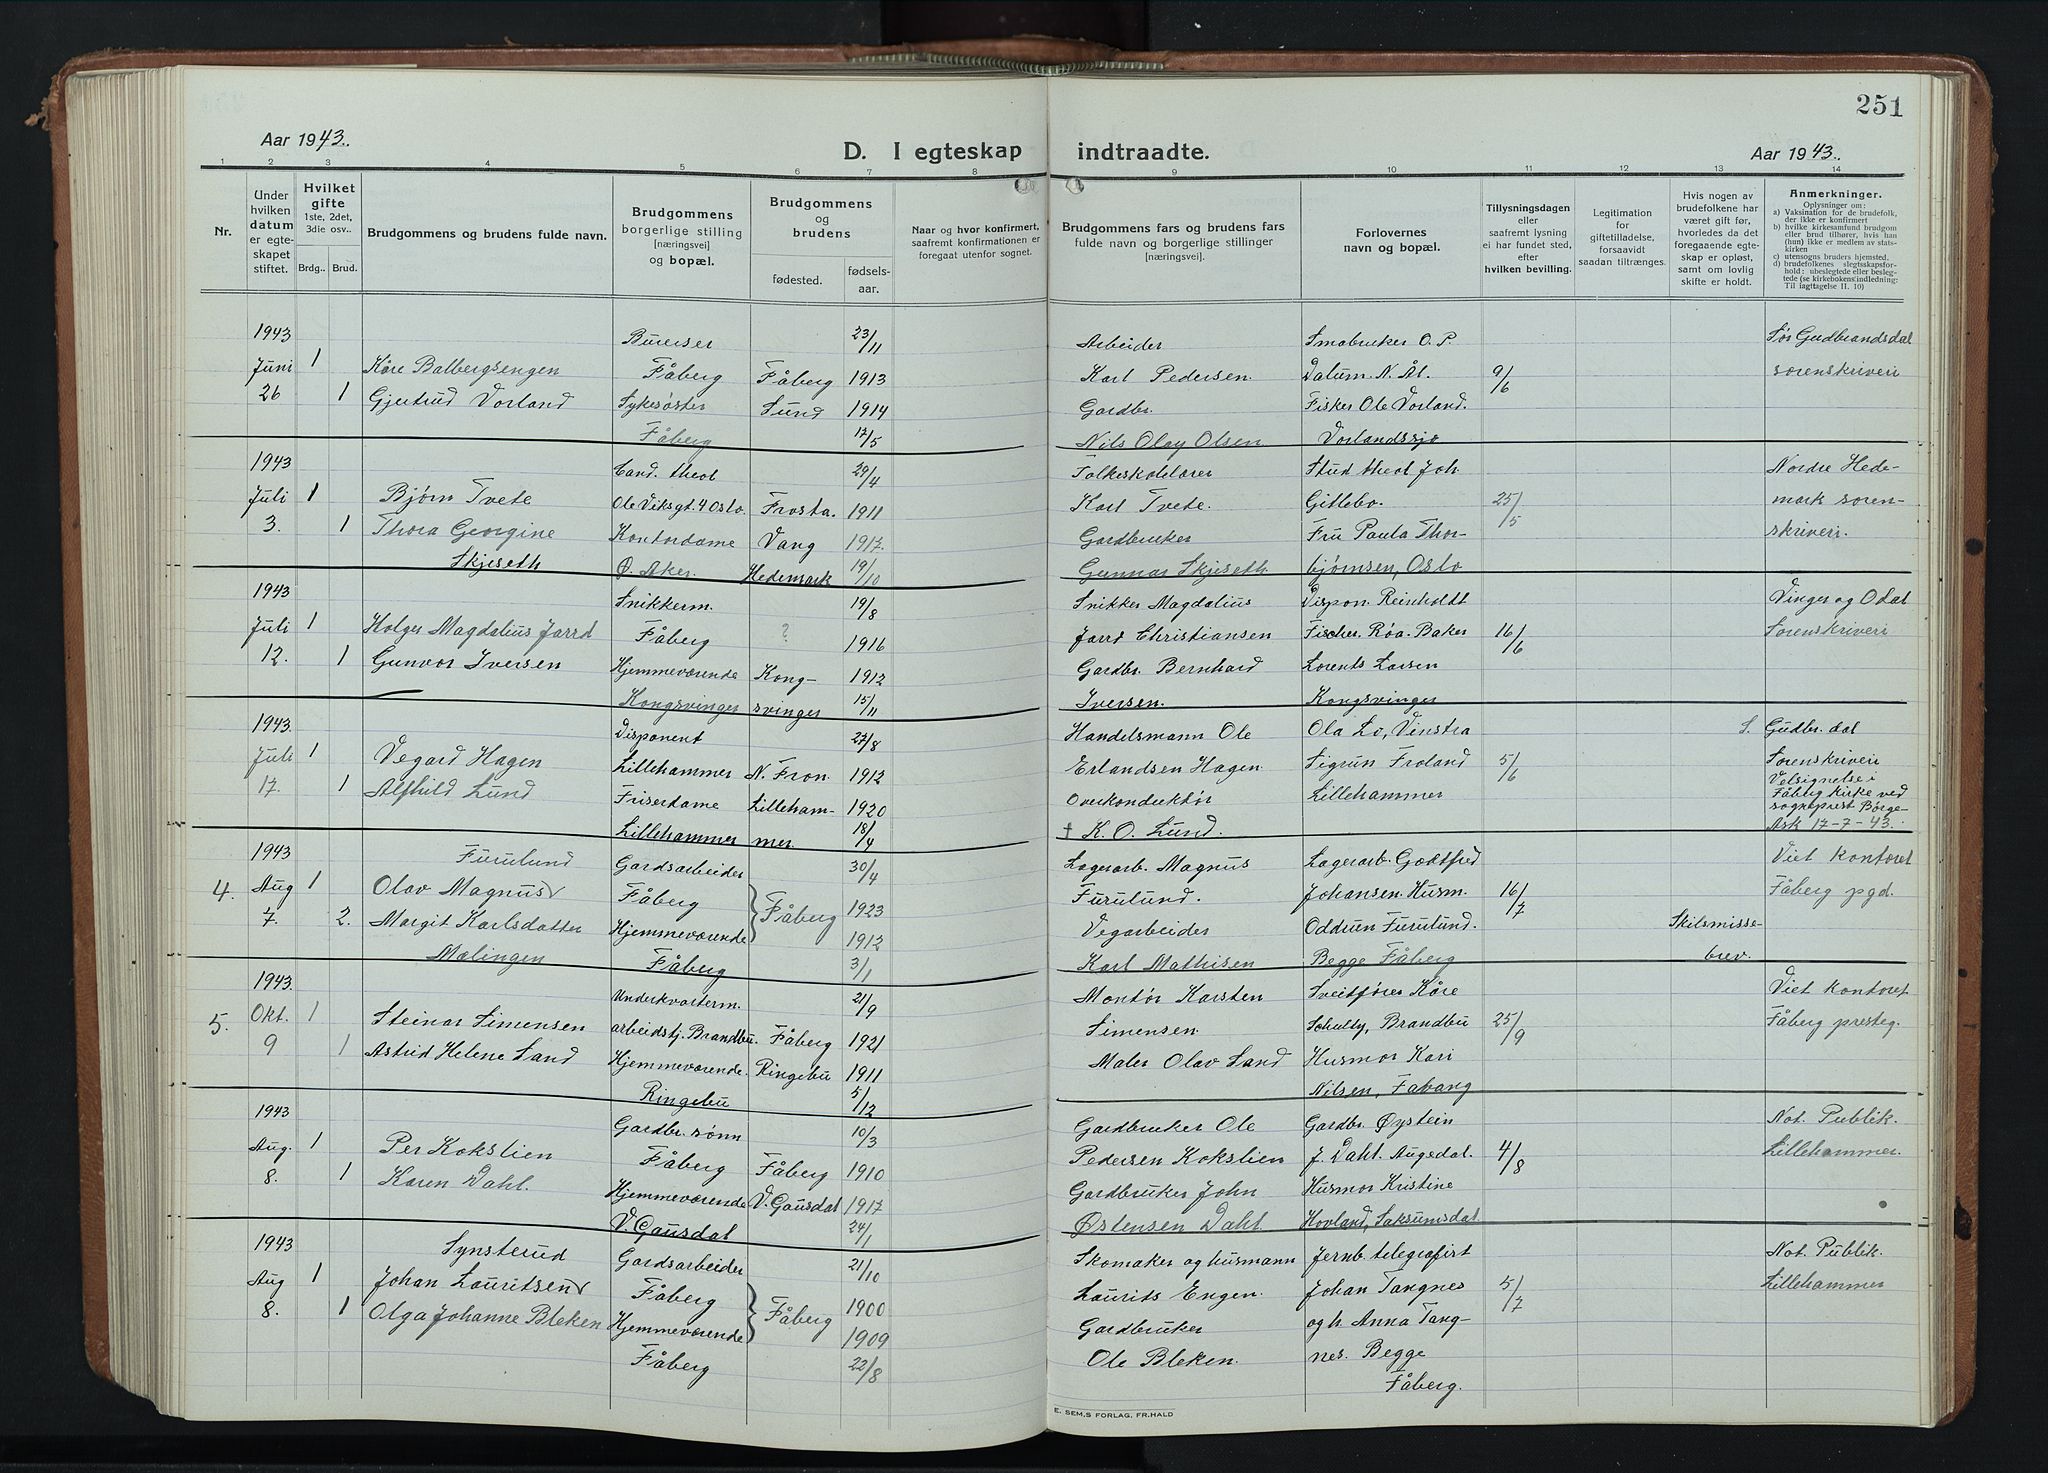 251
Aar 1943.
D. I egteskap indtraadte.
Aar 1943.
1 2 3 4 5 6 7 8 9 10 11 12 13 14
Nr.
Under hvilken datum er egte-skapet stiftet.
Hvilket gifte 1ste, 2det, 3die osv..
Brdg.. Brud.
Brudgommens og brudens fulde navn.
Brudgommens borgerlige stilling [næringsvei] og bopæl.
Brudgommens og brudens
fødested. fødsels-aar.
Naar og hvor konfirmert, saafremt konfirmationen er foregaat utenfor sognet.
Brudgommens fars og brudens fars fulde navn og borgerlige stillinger [næringsvei].
Forlovernes navn og bopæl.
Tillysningsdagen eller saafremt lysning ei har fundet sted, efter hvilken bevilling.
Legitimation for giftetilladelse, forsaavidt saadan tiltrænges.
Hvis nogen av brudefolkene har været gift før, hvorledes da det foregaaende egte-skap er opløst, samt om lovlig skifte er holdt.
Anmerkninger.
Oplysninger om:
a) Vaksination for de brudefolk, der ikke er konfirmert
b) hvilke kirkesamfund brudgom eller brud tilhører, hvis han (hun) ikke er medlem av stats-kirken
c) utensogns bruders hjemsted.
d) brudefolkenes slegtsskapsfor-hold: ubeslegtede eller besleg-tede (se kirkebokens indledning: Til iagttagelse II. 10)
1943 Bureiser 23/11 Arbeider Småbruker O. P. Sør Gudbrandsdal
Juni 1 Kåre Balbergsengen Fåberg Fåberg 1913 Karl Pedersen. Dalum. N. Ål. 9/6 sorenskriveri
26 1 Gjertrud Vorland Sykesøster Sund 1914 Gardbr. Fisker Ole Vorland.
Fåberg 17/5 Nils Olay Olsen Vorlandssjo
1943 Cand. theol 29/4 Folkeskolelærer Stud theol Joh. Nordre Hede-
Juli 1 Bjørn Tvete Ole Viksgt. 4 Oslo. Frosta. 1911 Karl Tvete. Gitlebo. 25/5 mark soren-
3. 1 Thora Georgine Kontordame Vang 1917. Gardbruker Fru Paula Thor- skriveri.
Skjeseth Ø. Aker. Hedemark 19/10 Gunnar Skjeseth. bjørnsen, Oslo
1943 Snikkerm. 19/8 Snikker Magdalius Dispon. Reinholdt Vinger og Odal
Juli 1 Holger Magdalius Jarrd Fåberg ? 1916 Jarrd Christiansen Fischer. Røa. Baker 16/6 Sorenskriveri
12. 1 Gunvor Iversen Hjemmeværende Kong- 1912 Gardbr. Bernhard Lorents Larsen
Kongsvinger svinger 15/11 Iversen. Kongsvinger
1943. Disponent 27/8 Handelsmann Ole Ola Lo, Vinstra S. Gudbr. dal
Juli 1 Vegard Hagen Lillehammer N. Fron. 1912 Erlandsen Hagen. Sigrun Froland 5/6 Sorenskriveri
17. 1 Alfhild Lund Friserdame Lilleham- 1920 Overkonduktør Lillehammer Velsignelse i
Fåberg kirke ved
sogneprest Børge-
Lillehammer mer. 18/4 † K. O. Lund. Ask 17-7-43.
1943 Furulund Gardsarbeider 30/4 Lagerarb. Magnus Lagerarb. Godtfred Viet kontoret
4. Aug 1 Olav Magnus Fåberg Fåberg 1923 Furulund. Johansen. Husm. 16/7 Fåberg pgd.
7. 2. Margit Karlsdatter Hjemmeværende 1912 Vegarbeider Oddrun Furulund. Skilsmisse-
Mælingen Fåberg 3/1 Karl Mathisen Begge Fåberg brev.
1943. Underkvarterm. 21/9 Montør Karsten Sveitfører Kåre Viet kontoret
5. Okt. 1 Steinar Simensen arbeidstj. Brandbu. Fåberg 1921 Simensen. Schulty, Brandbu 25/9 Fåberg presteg.
9 1 Astrid Helene Sand Hjemmeværende. Ringebu 1911 Maler Olav Sand Husmor Kari
Ringebu 5/12 Nilsen, Fåvang
1943 Gardbr. sønn 10/3 Gardbruker Ole Gardbr. Øystein Not. Publik.
Aug. 1 Per Kokslien Fåberg Fåberg 1910 Pedersen Kokslien J. Dahl. Augedal. 4/8 Lillehammer.
8. 1 Karen Dahl. Hjemmeværende V. Gausdal 1917 Gardbruker John Husmor Kristine
V. Gausdal 24/1 Østensen Dahl. Hovland, Saksumsdal
1943 Synsterud Gardsarbeider 21/10 Skomaker og husmann Jernb. telegrafist Not. Publik.
Aug 1 Johan Lauritsen Fåberg Fåberg 1900 Laurits Engen. Johan Tangnes 5/7 Lillehammer
8. 1 Olga Johanne Bleken Hjemmeværende 1909 Gardbruker ogh Anna Tang-
Fåberg 22/8 Ole Bleken. nes. Begge
Fåberg.
E. SEM,S FORLAG, FR.HALD